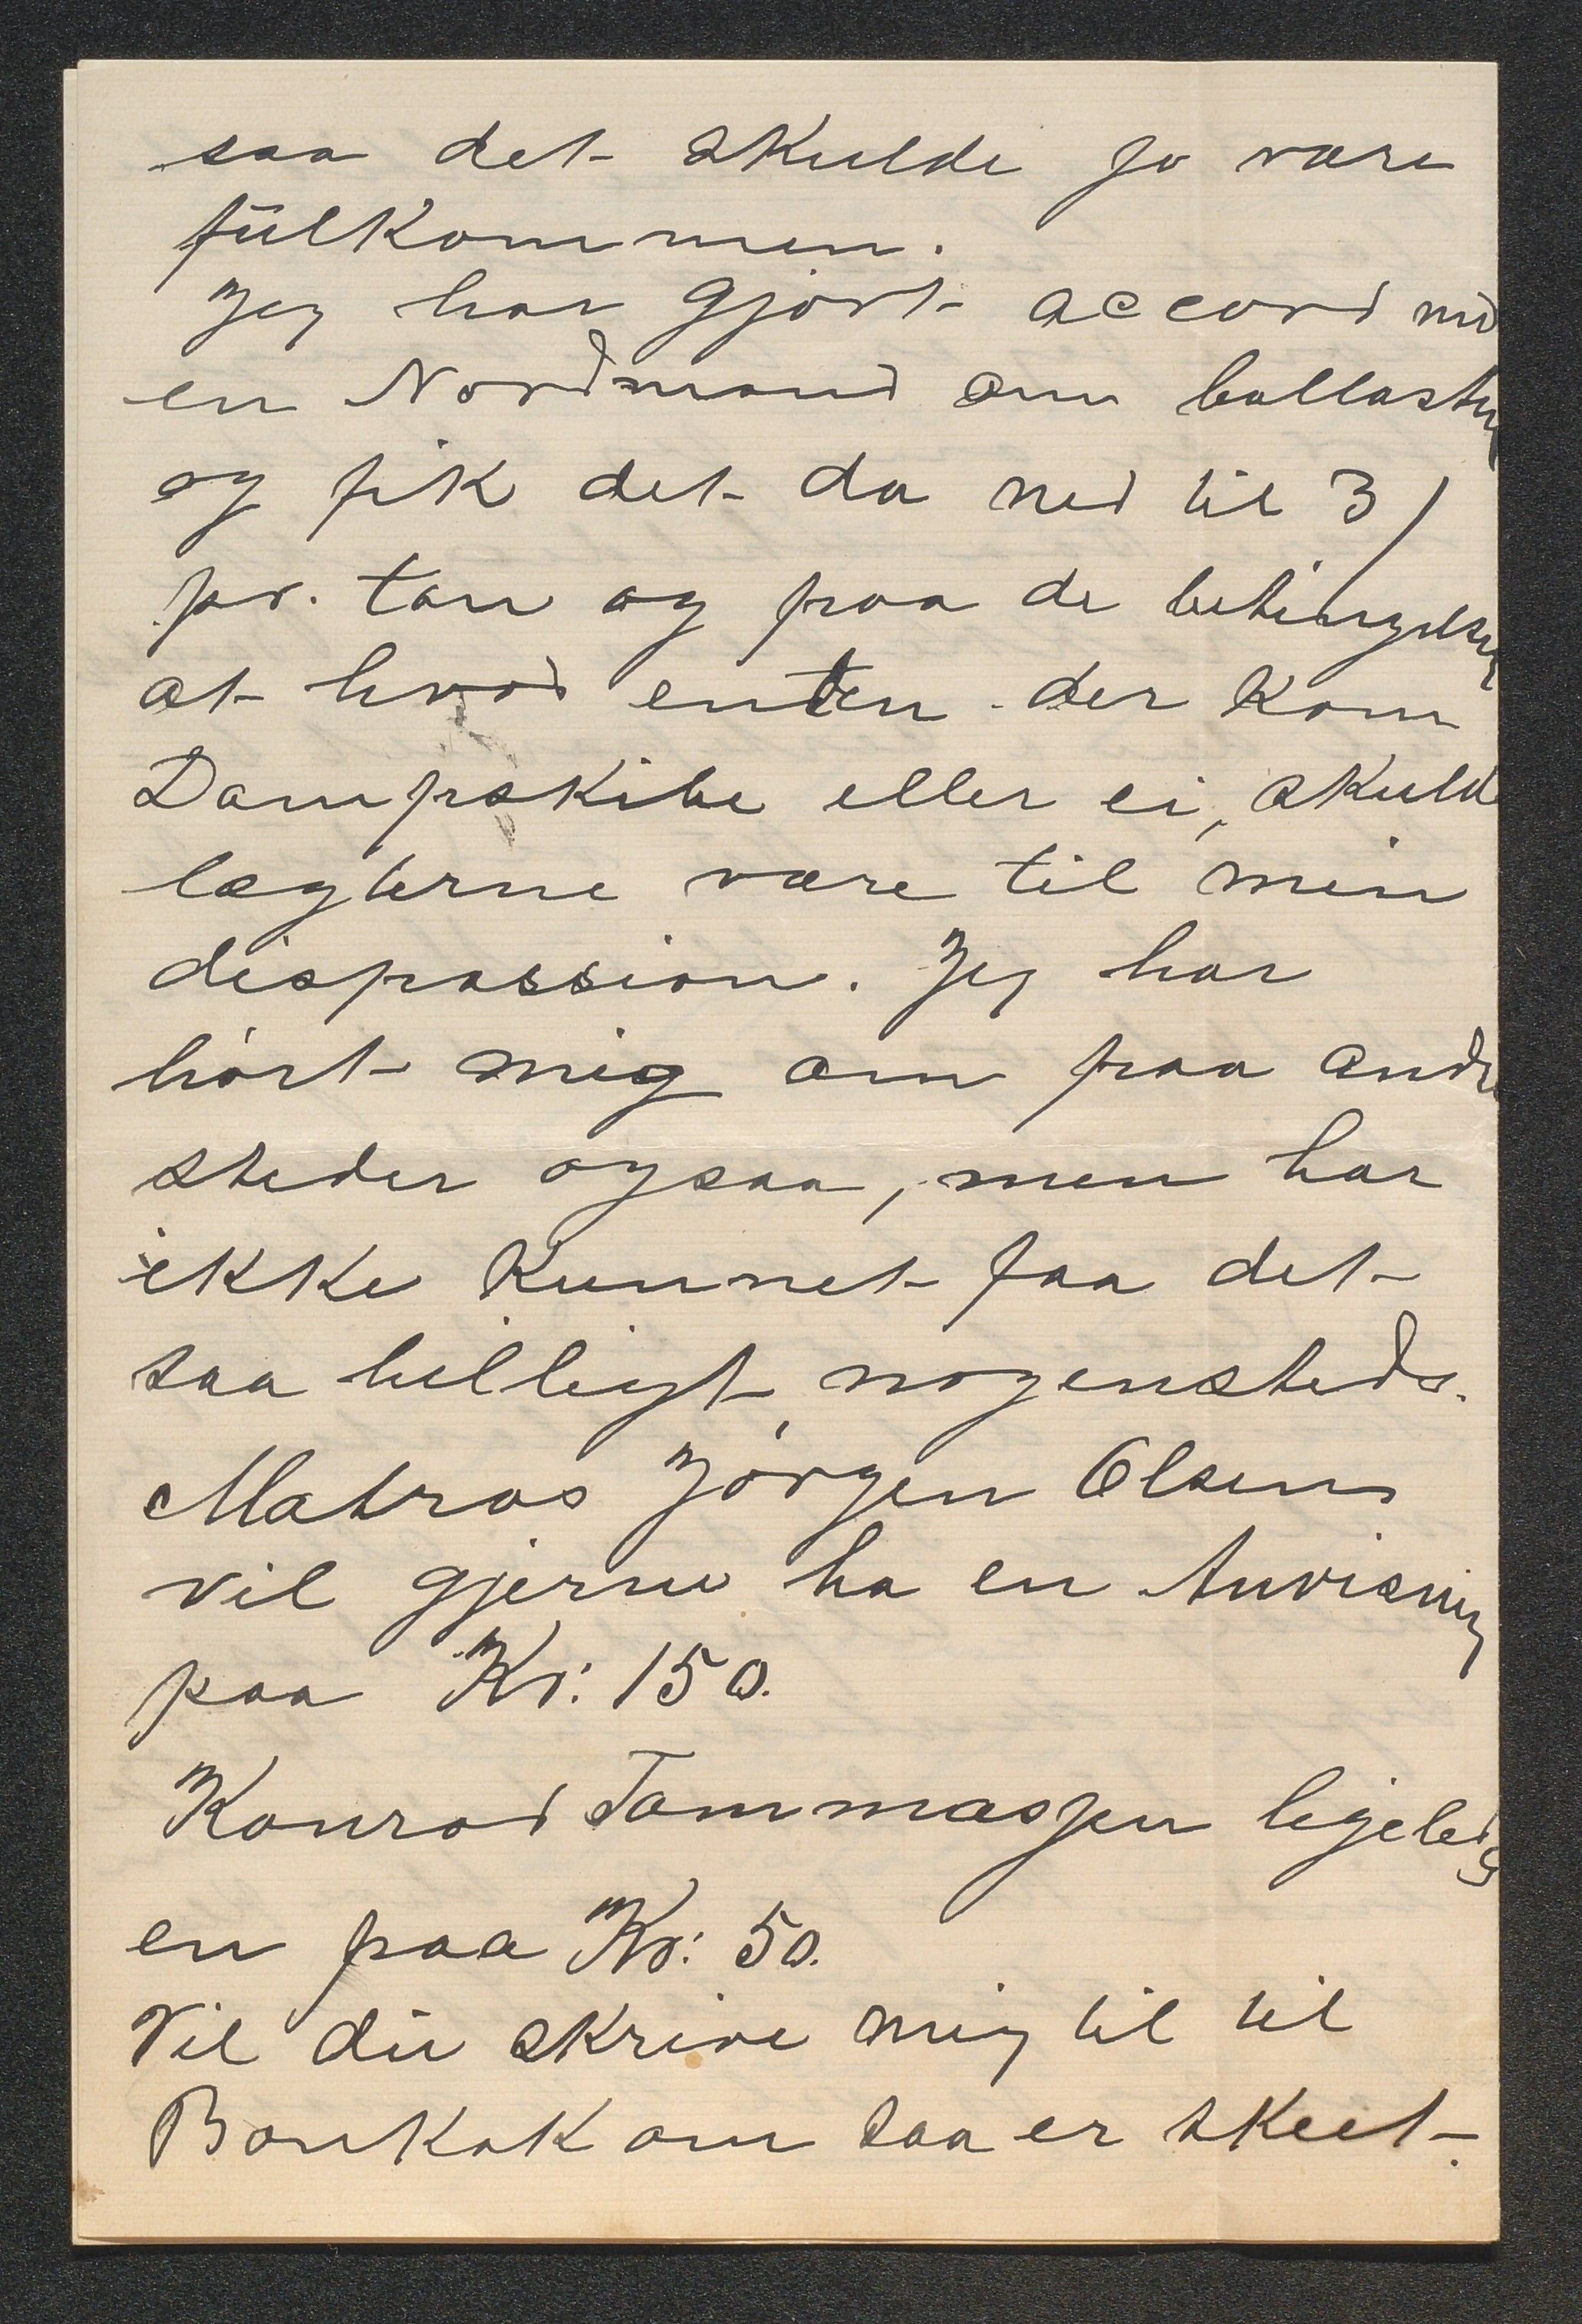 saa det skulde jo være
fülkommen.
Jeg har gjört accord med
en Nordmand om ballasten
og fik det da ned til 3/
pr. ton og paa de betingelser
at hvad enten der kom
Dampskibe eller ei, skulde
lægterne være til min
dispossion. Jeg har
hört mig om paa andre
steder ogsaa, men har
ikke kunnet faa det
saa billigt nogensteds.
Matros Jörgen Olsen
vil gjerne ha en Anvisning
paa Kr: 150.
Konrad Tommassen ligeleds
en paa Kr: 50.
Vil dü skrive mig til til
Bankok om saa er skeet.